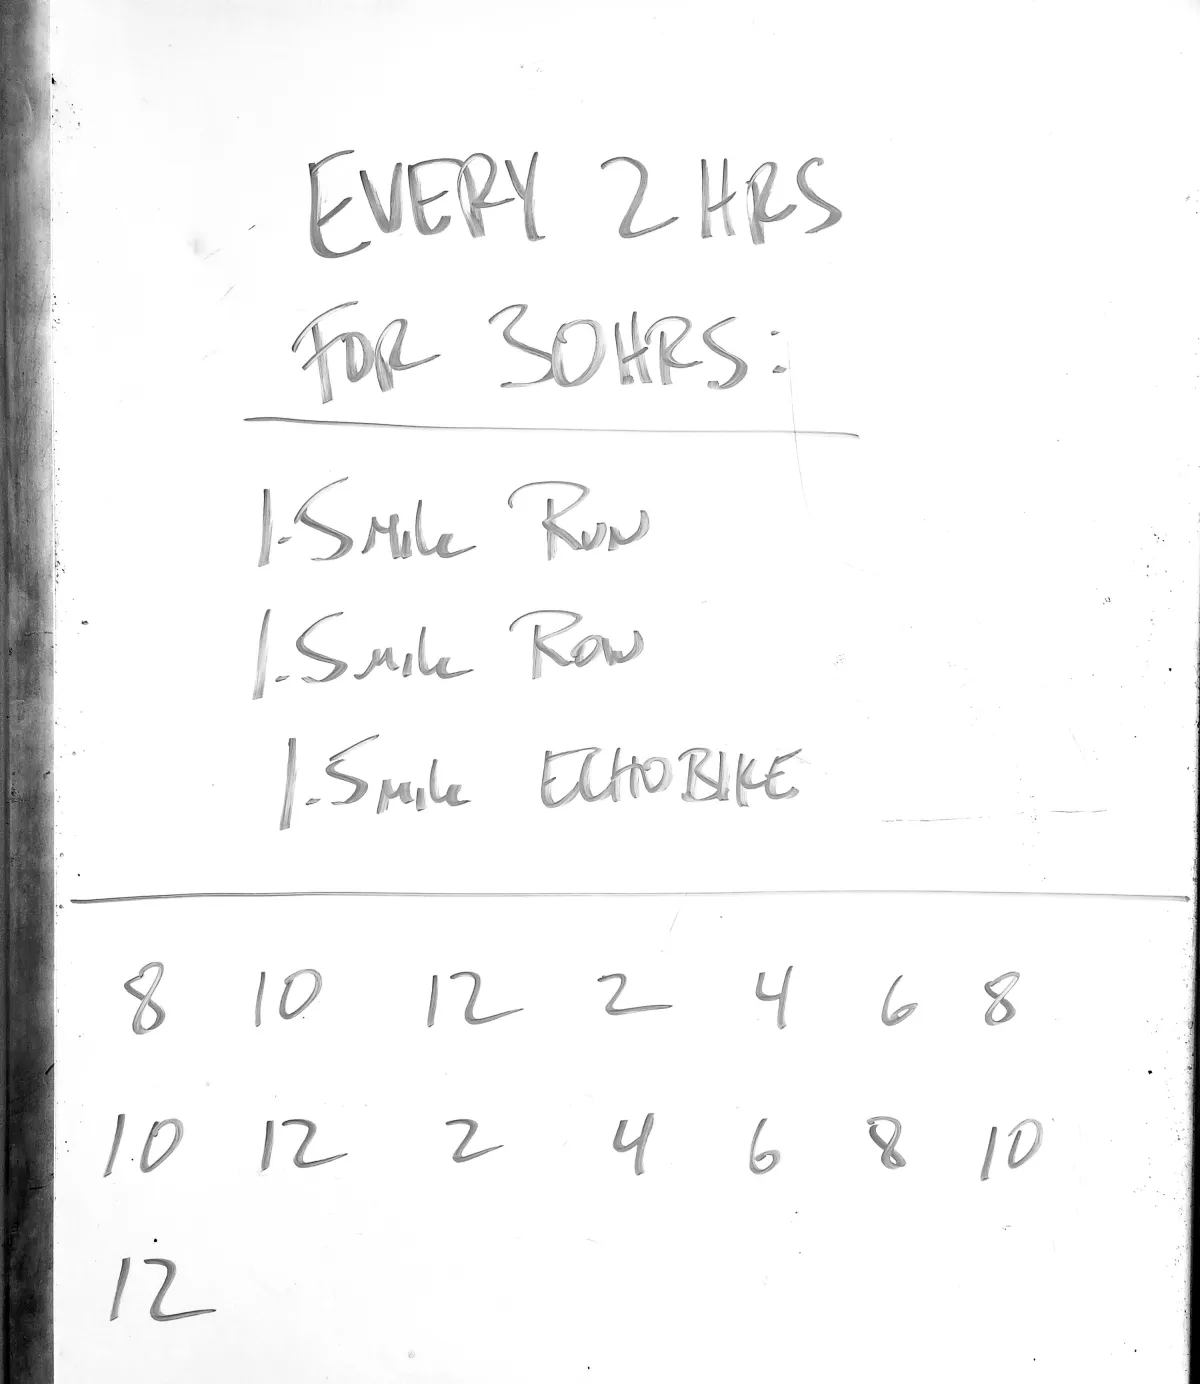 EVERY 2 HRS
FOR 30HRS:
1.5 mile Run
1.5 mile Row
1.5 mile ECHO BIKE
8 10 12 2 4 6 8
10 12 2 4 6 8 10
12